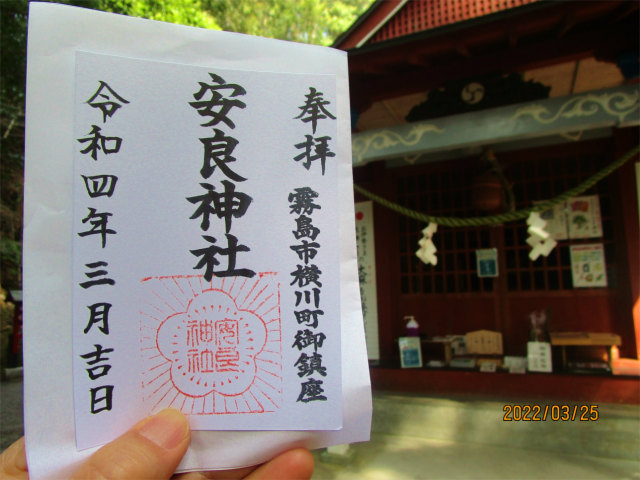 奉拝
霧島市横川町御鎮座
安良神社
安良
神社
令和四年三月吉日
2022/03/25